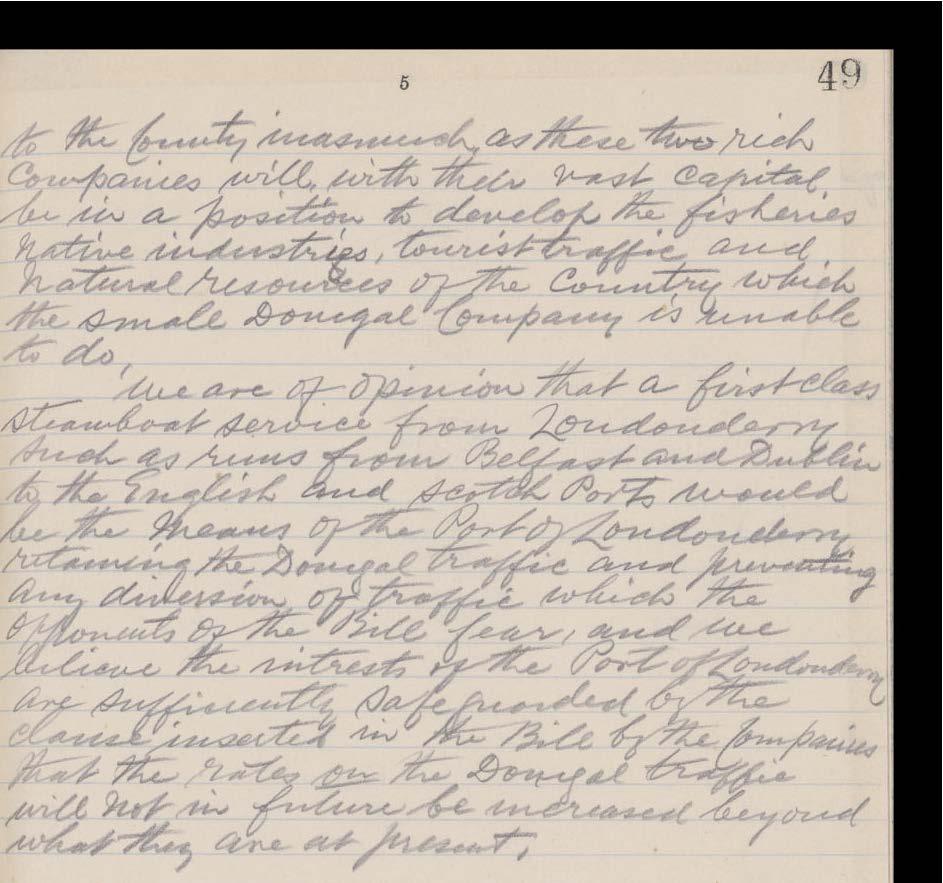 5
49
to the County inasmuch, as these two rich
Companies will, with their vast capital,
be in a position to develop the fisheries
native industries, tourist traffic and
natural resources of the Country which
the small Donegal Company is unable
to do,
We are of opinion that a first class
steamboat service from Londonderry
such as runs from Belfast and Dublin
to the English and Scotch Ports would
be the means of the Port of Londonderry
retaining the Donegal traffic and preventing
any diversion of traffic which the
opponents of the Bill fear, and we
believe the intrests of the Port of Londonderry
are sufficiently safeguarded by the
clause inserted in the Bill by the Companies
that the rates on the Donegal traffic
will not in future be increased beyond
what they are at present,